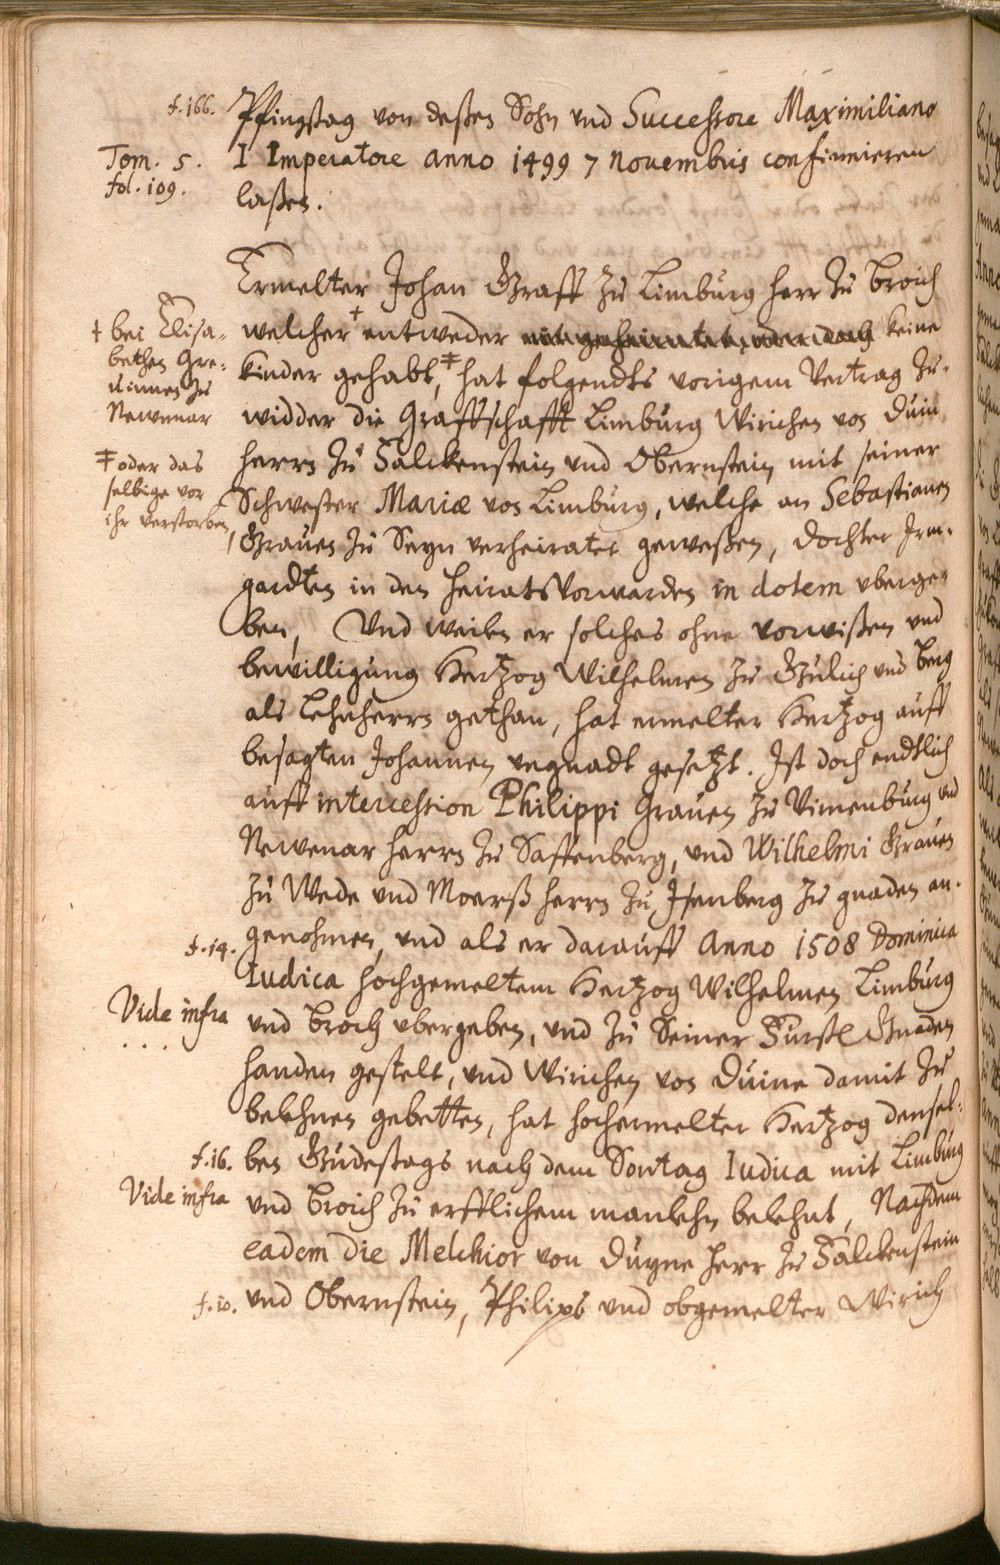 f. 166.
Pfingstag von deßen Sohn vnd Successore Maximiliano
Tom. 5.
fol. 109.
I Imperatore anno 1499 7 Novembris confirmieren
laßen.
Ermelter Johan Graff zu Limburg herr zu Broich
† bei Elisa-
bethen Gre-
uinnen zu
Newenar
welcher † entweder nit geheiratet, oder doch keine
Kinder gehabt, ‡ hat folgendts vorigem Vertrag zu-
widder die Graffschafft Limburg Wirichen von Duin
‡ oder das
selbige vor
ihr verstorben,
herrn zu Falckenstein und Obernstein mit seiner
Schwester Mariæ von Limburg, welche an Sebastianen
Grauen zu Seyn verheiratet geweßen, dochter Irm-
gardten in den heirats Vorwarden in dotem vberge-
ben, Vnd weilen er solches ohne vorwißen und
bewilligung Hertzog Wilhelmen zu Gulich und Berg
als Lehnherrn gethan, hat ermelter Hertzog auff
besagten Johannen vngnadt gesetzt. Ist doch endtlich
auff intercession Philippi Grauen zu Virnenburg und
Newenar herrn zu Saffenberg, und Wilhelmi Grauen
zu Wede und Moerß herrn zu Isenberg zu gnaden an-
f. 14.
genohmen, und als er darauff Anno 1508 Dominica
Iudica hochgemeltem Hertzog Wilhelmen Limburg
Vide infra
. . .
und Broch vbergeben, und zu Seiner Furstl Gnaden
handen gestelt, und Wirichen von Duine damit zu
belehnen gebetten, hat hochermelter Hertzog densel-
f. 16.
ben Gudestags nach dem Sontag Iudica mit Limburg
Vide infra
und Broich zu erfflichem manlehn belehnt, Nachdem
eadem die Melchior von Duyne herr zu Falckenstein
f. 10.
und Obernstein, Philips und obgemelter Wirich